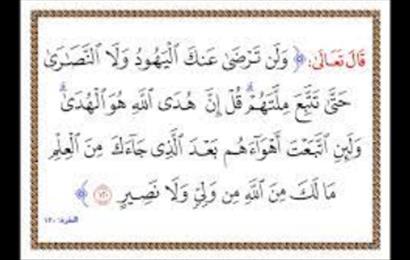 قَالَ تَعَالَىٰ: ﴿ وَلَن تَرْضَىٰ عَنكَ ٱلْيَهُودُ وَلَا ٱلنَّصَٰرَىٰ
حَتَّىٰ تَتَّبِعَ مِلَّتَهُمْ ۗ قُلْ إِنَّ هُدَى ٱللَّهِ هُوَ ٱلْهُدَىٰ ۗ
وَلَئِنِ ٱتَّبَعْتَ أَهْوَآءَهُم بَعْدَ ٱلَّذِى جَآءَكَ مِنَ ٱلْعِلْمِ
مَا لَكَ مِنَ ٱللَّهِ مِن وَلِىٍّ وَلَا نَصِيرٍ ١٢٠ ﴾
البقرة: ١٢٠